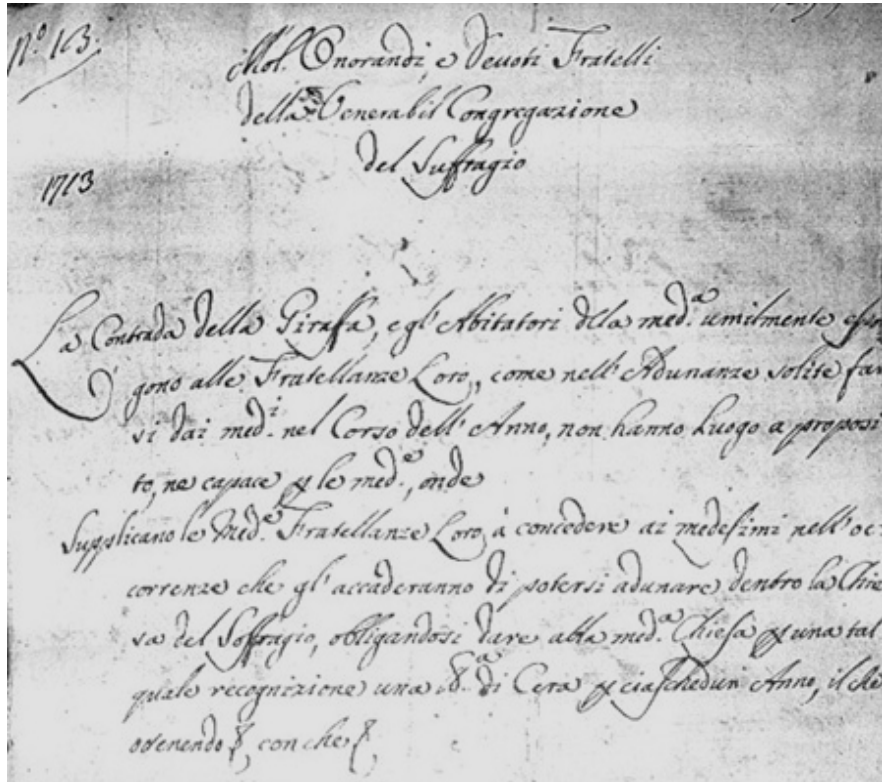 N.º 113.
Mol. Onorandi, e Devoti Fratelli
della Venerabil Congregazione
del Suffragio
1713
La Contrada della Giraffa, e gl' Abitatori della med.ª umilmente espon
gono alle Fratellanze Loro, come nell' Adunanze solite far
si dai med.i nel Corso dell' Anno, non hanno luogo a proposi
to, ne capace p le med.e, onde
Supplicano le Med.e Fratellanze Loro, à concedere ai medesimi nell' oc
correnze che gl' accaderanno di potersi adunare dentro la Chie
sa del Soffragio, obligandosi dare alla med.ª Chiesa p una tal
quale recognizione una di Cera p ciaschedun Anno, il che
ottenendo con che